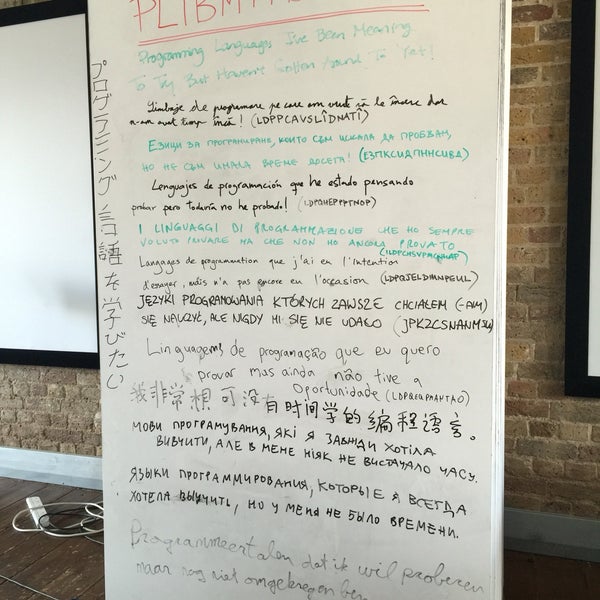 Programming Languages I've Been Meaning
To Try But Haven't Gotten Around To Yet!
Limbaje de programare pe care am vrut să le încerc dar
n-am avut timp încă! (LDPPCAVSLÎDNATÎ)
ЕЗИЦИ ЗА ПРОГРАМИРАНЕ, КОИТО СЪМ ИСКАЛА ДА ПРОБВАМ,
НО НЕ СЪМ ИМАЛА ВРЕМЕ ДОСЕГА! (ЕЗПКСИДПННСИВД)
Lenguajes de programación que he estado pensando
probar pero todavía no he probado! (LDPQHEPPPTNOP)
I LINGUAGGI DI PROGRAMMAZIONE CHE HO SEMPRE
VOLUTO PROVARE MA CHE NON HO ANCORA PROVATO
Langages de programmation que j'ai eu l'intention
d'essayer, mais n'a pas encore eu l'occasion (LDPQJELDIMNPEUL)
JĘZYKI PROGRAMOWANIA KTÓRYCH ZAWSZE CHCIAŁEM (-AM)
SIĘ NAUCZYĆ, ALE NIGDY MI SIĘ NIE UDAŁO
Linguagens de programação que eu quero
provar mas ainda não tive a
Oportunidade
我非常想可没有时间学的编程语言。
МОВИ ПРОГРАМУВАННЯ, ЯКІ Я ЗАВЖДИ ХОТІЛА
ВИВЧИТИ, АЛЕ В МЕНЕ НІЯК НЕ ВИСТАЧАЛО ЧАСУ.
ЯЗЫКИ ПРОГРАММИРОВАНИЯ, КОТОРЫЕ Я ВСЕГДА
ХОТЕЛА ВЫУЧИТЬ, НО У МЕНЯ НЕ БЫЛО ВРЕМЕНИ.
Programmeertalen dat ik wil proberen
maar nog niet omgekregen
プログラミング言語を学びたい